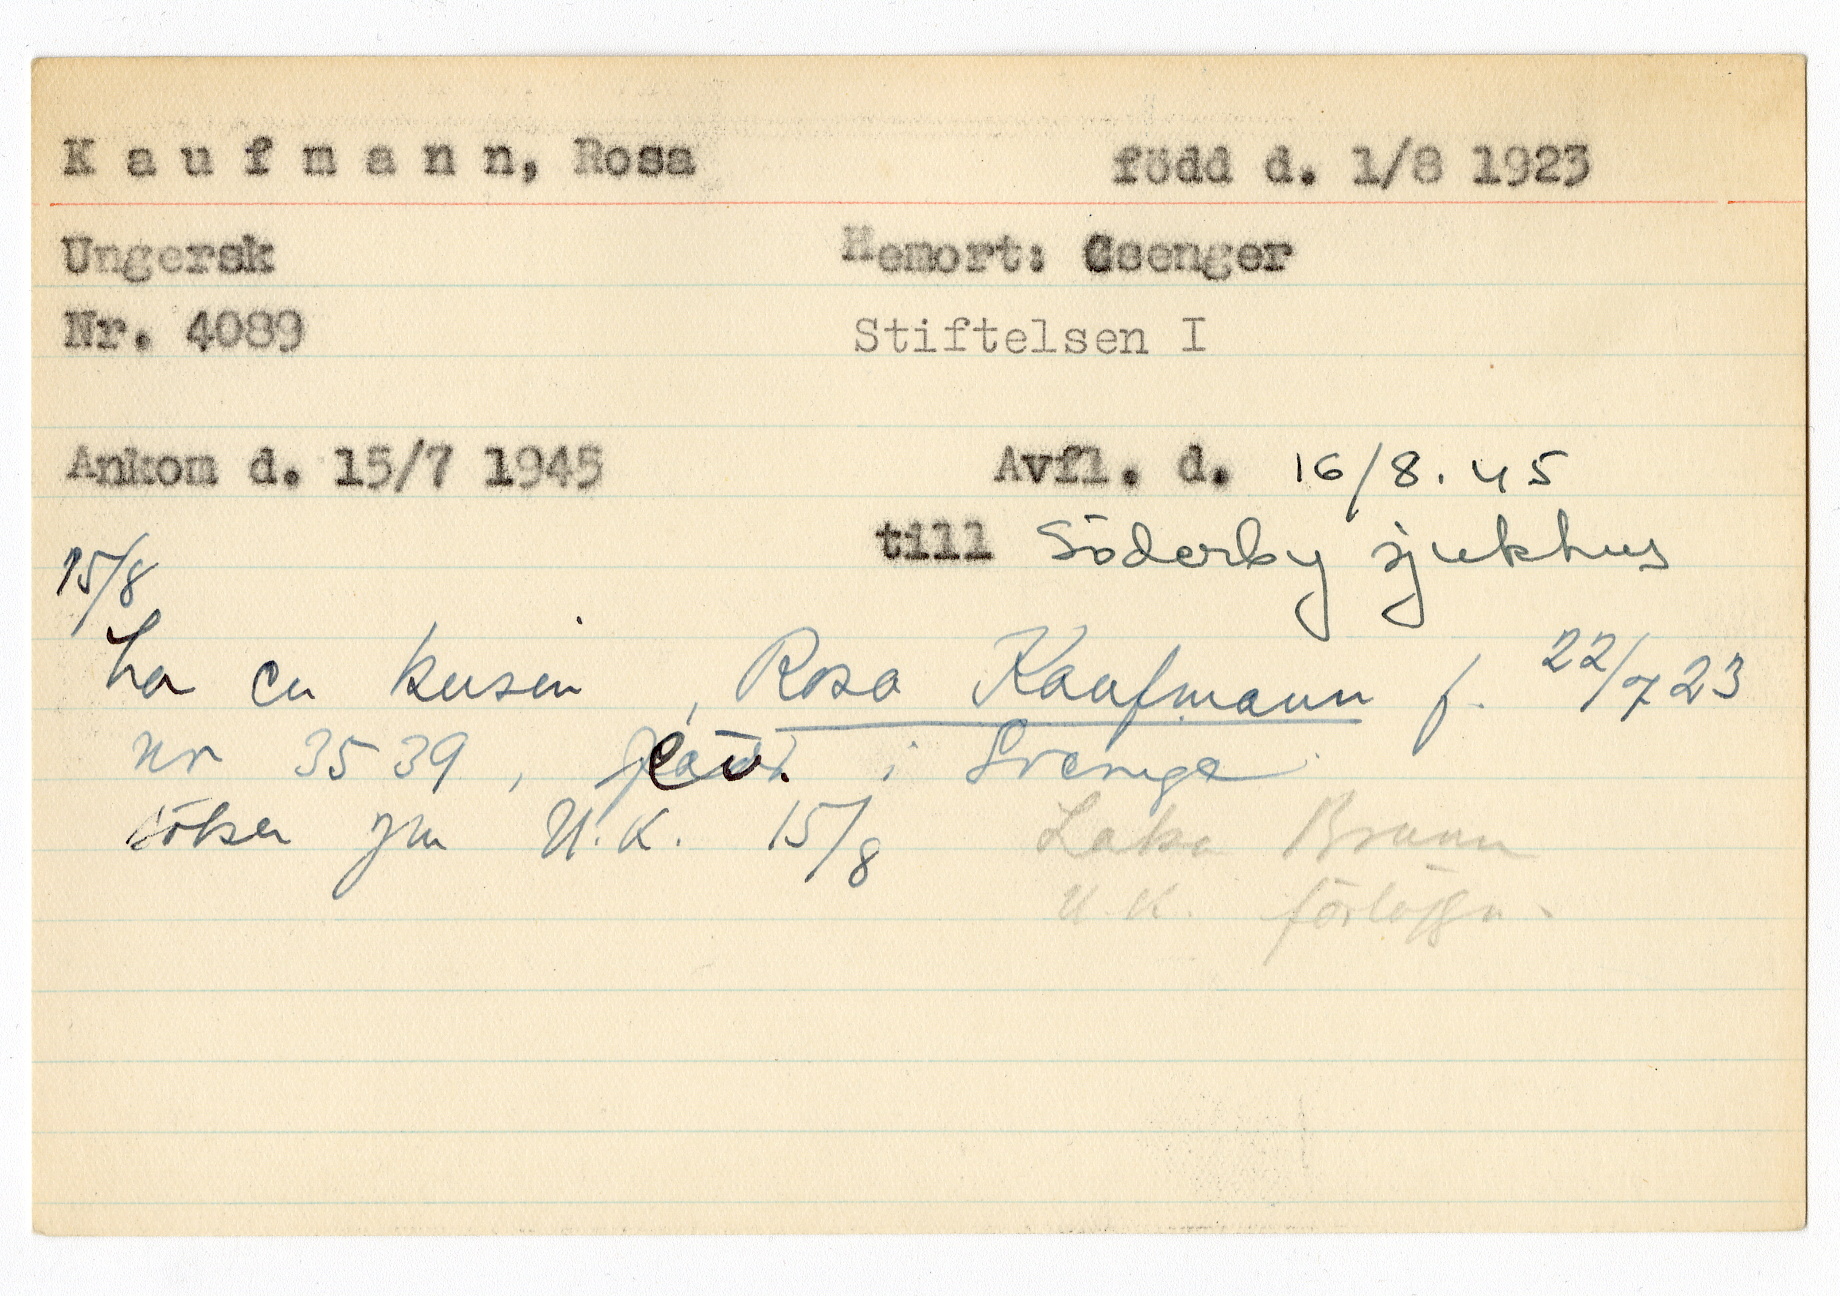 K a u f m a n n, Rosa född d. 1/8 1923
Ungersk Hemort: Csenger
Nr. 4089 Stiftelsen I
Ankom d. 15/7 1945 Avfl. d. 16/8.45
till Söderby sjukhus
15/8
har en kusin, Rosa Kaufmann f. 22/7 23
nr 3539, ev. i Sverige
söker gm U.K. 15/8 Brunn
U.K. förläggn.